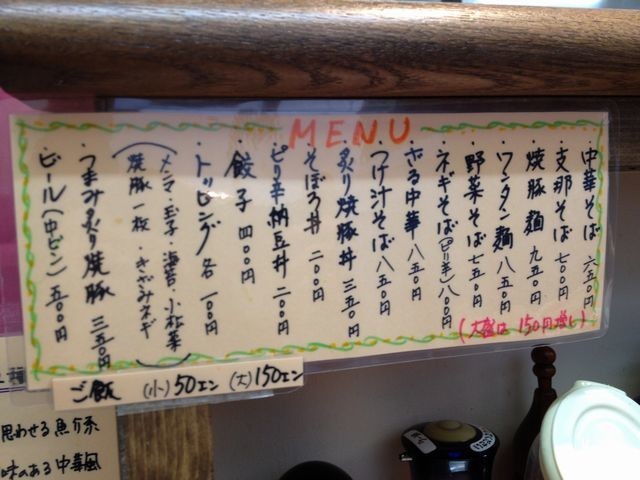 MENU
・中華そば 六五〇円
・支那そば 七〇〇円
・焼豚麺 九五〇円
・ワンタン麺 八五〇円
・野菜そば 七五〇円
・ネギそば(ピリ辛) 八〇〇円
・ざる中華 八五〇円
・つけ汁そば 八五〇円
・炙り焼豚丼 三五〇円
・そぼろ丼 二〇〇円
・ピリ辛納豆丼 二〇〇円
・餃子 四〇〇円
・トッピング 各 一〇〇円
(メンマ・玉子・海苔・小松菜
焼豚一枚・きざみネギ)
・つまみ炙り焼豚 三五〇円
・ビール(中ビン) 五〇〇円
(大盛は 150円増し)
ご飯 (小)50エン (大)150エン
思わせる魚介系
味のある中華風